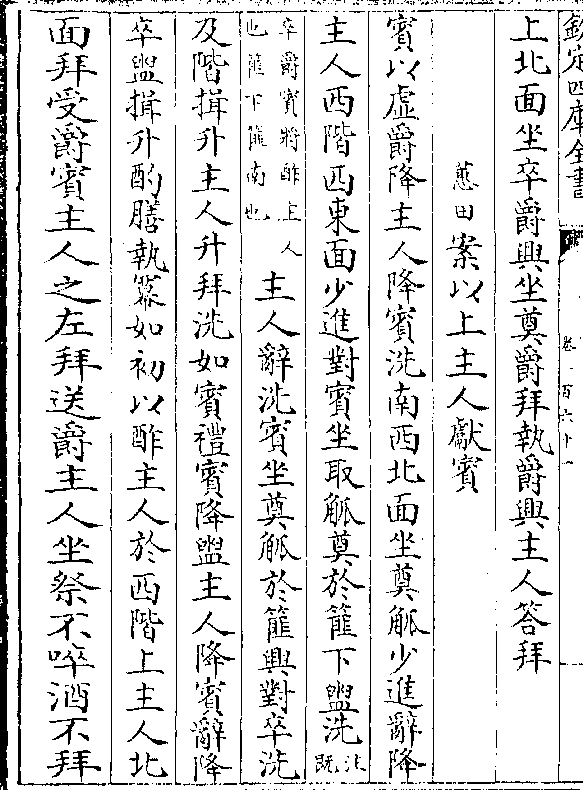 欽定四庫全書
卷一百六十一
上北面坐卒爵興坐奠爵拜執爵興主人答拜
蕙田案以上主人獻賓
賓以虛爵降主人降賓洗南西北面坐奠觚少進辭降
主人西階西東面少進對賓坐取觚奠於篚下盥洗注既
卒爵賓將酢主人也篚下篚南也主人辭洗賓坐奠觚於篚興對卒洗
及階揖升主人升拜洗如賓禮賓降盥主人降賓辭降
卒盥揖升酌膳執冪如初以酢主人於西階上主人北
面拜受爵賓主人之左拜送爵主人坐祭不啐酒不拜